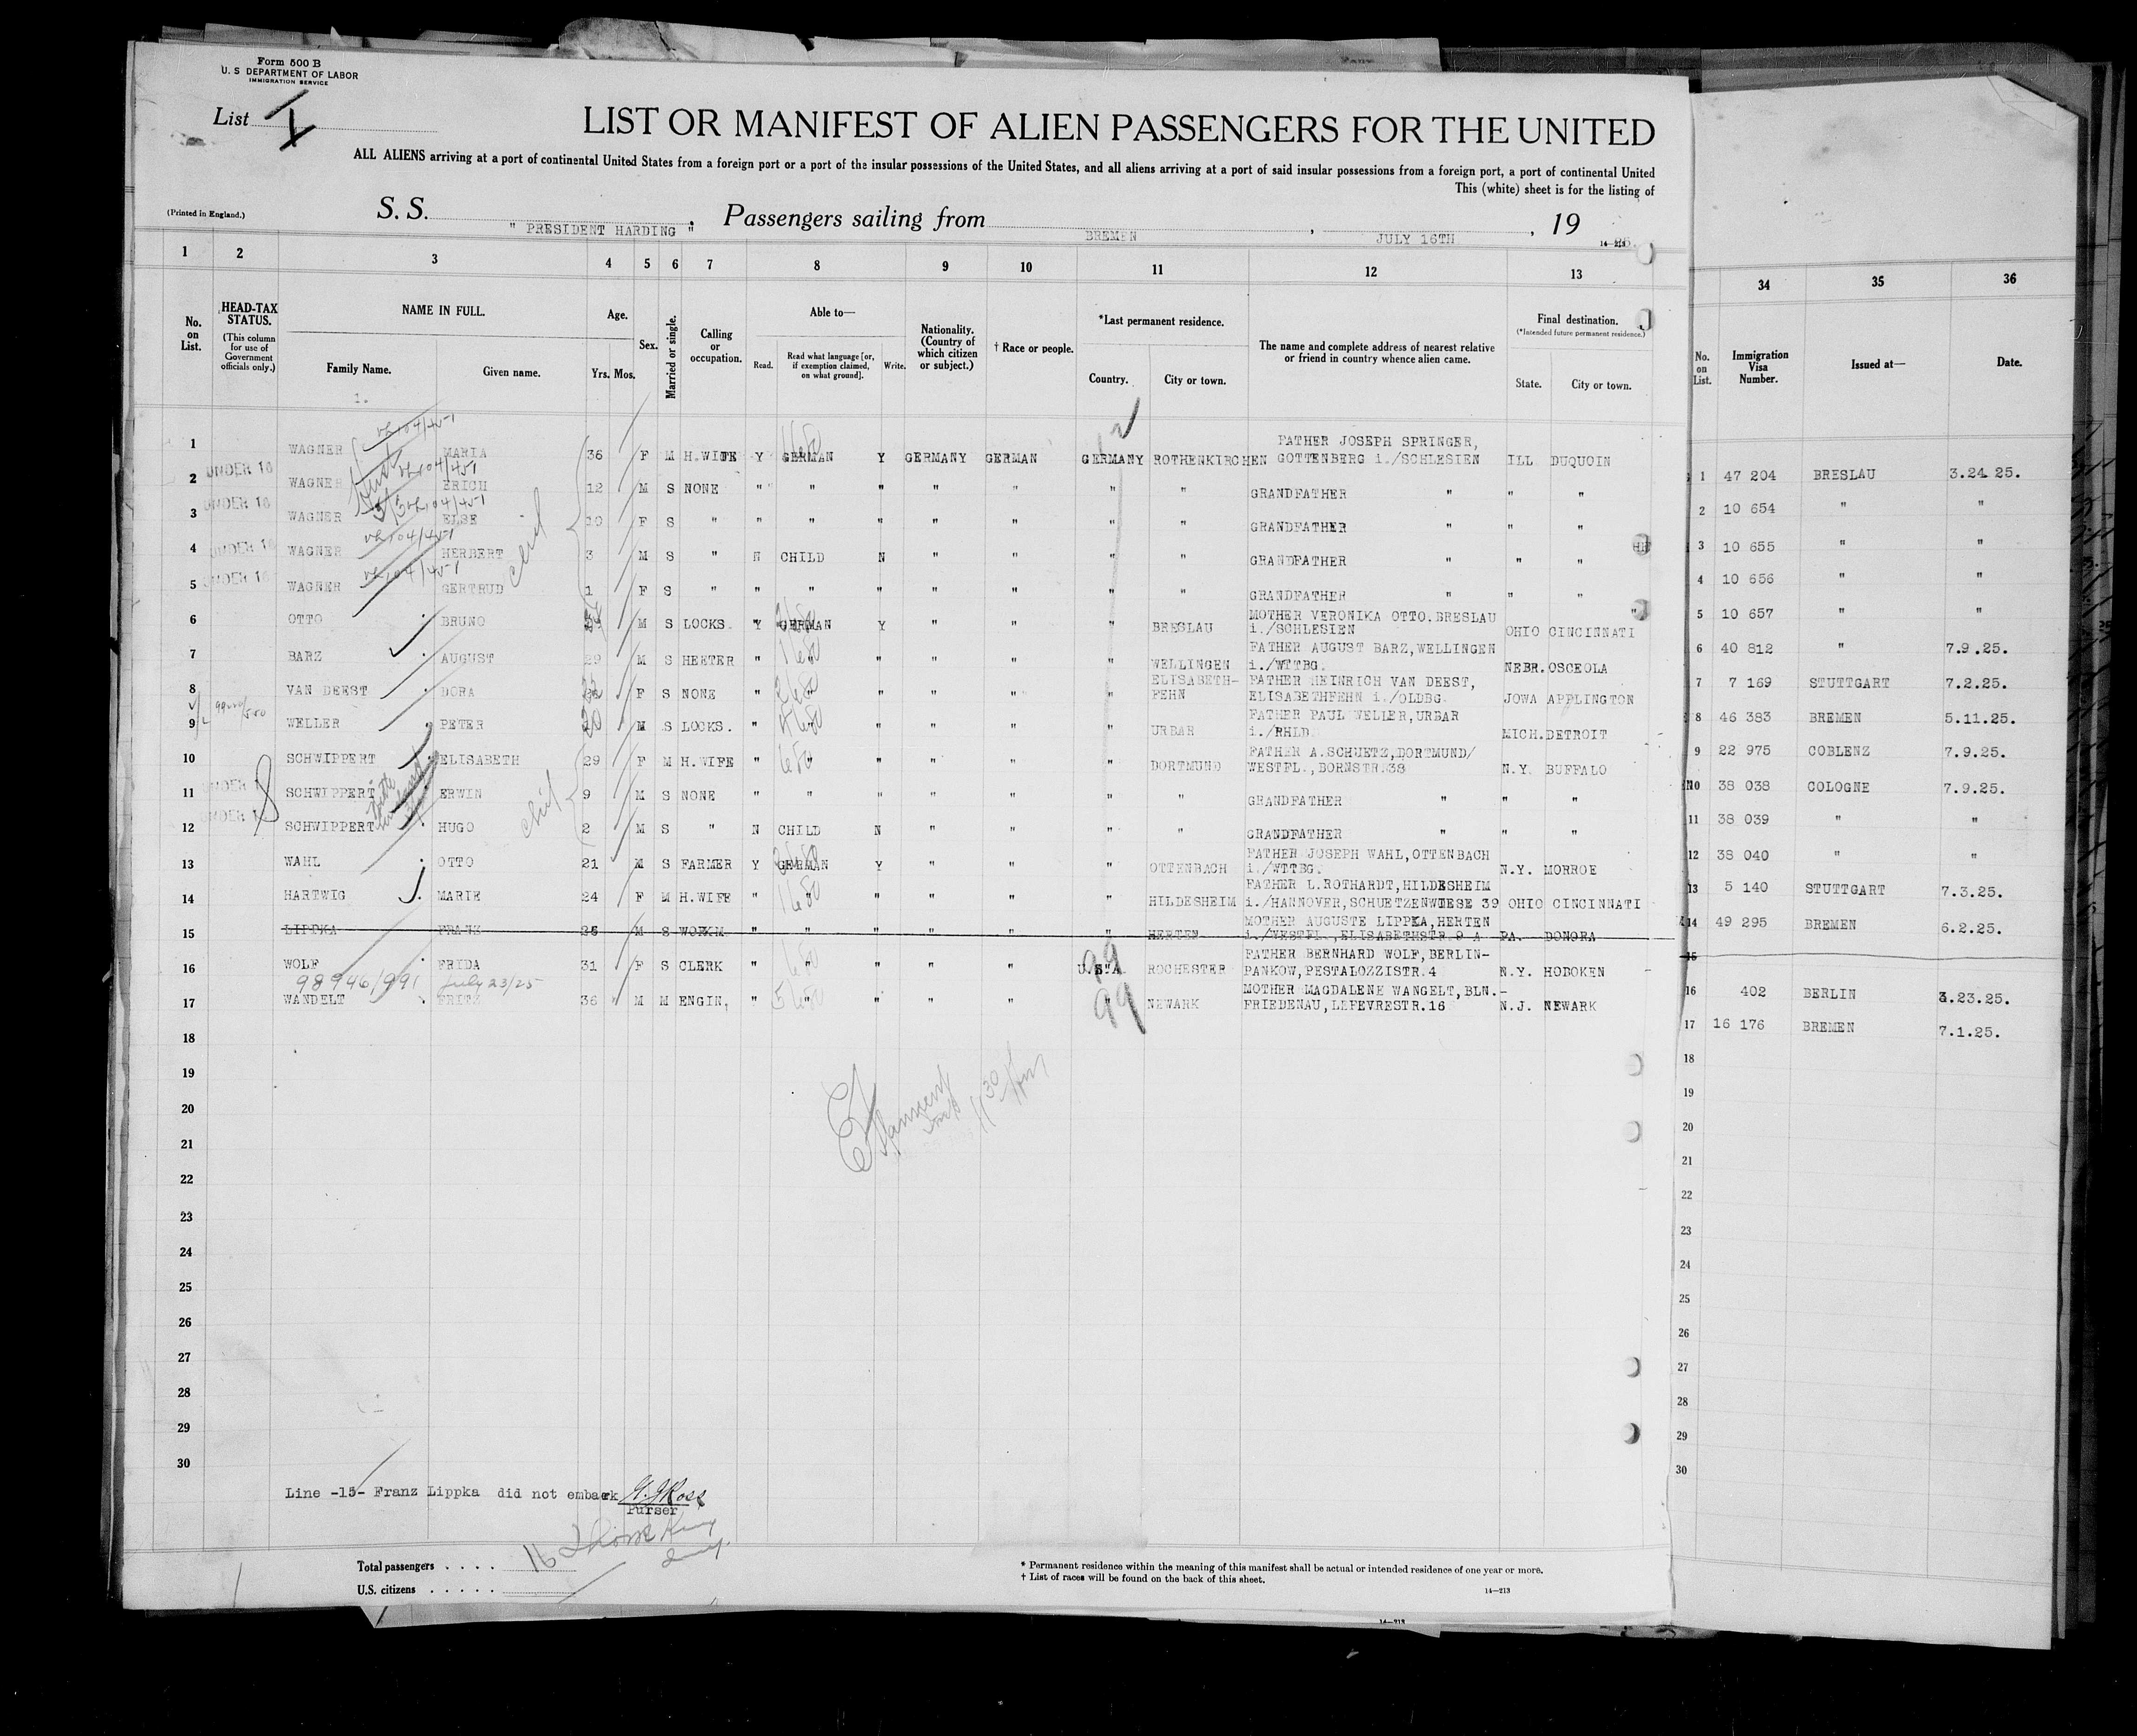 Form 500 B
U. S DEPARTMENT OF LABOR
IMMIGRATION SERVICE
List I
LIST OR MANIFEST OF ALIEN PASSENGERS FOR THE UNITED
ALL ALIENS arriving at a port of continental United States from a foreign port or a port of the insular possessions of the United States, and all aliens arriving at a port of said insular possessions from a foreign port, a port of continental United
This (white) sheet is for the listing of
(Printed in England.)
S. S. " PRESIDENT HARDING " , Passengers sailing from BREMEN , JULY 16TH , 19
1 2 3 4 5 6 7 8 9 10 11 12 13 34 35 36
No. on List.
HEAD-TAX STATUS.
(This column for use of Government officials only.)
NAME IN FULL.
Family Name. Given name.
Age.
Yrs. Mos.
Sex.
Married or single.
Calling or occupation.
Able to—
Read. Read what language [or, if exemption claimed, on what ground]. Write.
Nationality. (Country of which citizen or subject.)
† Race or people.
*Last permanent residence.
Country. City or town.
The name and complete address of nearest relative or friend in country whence alien came.
Final destination.
(*Intended future permanent residence.)
State. City or town.
No. on List.
Immigration Visa Number.
Issued at—
Date.
1.
1 WAGNER MARIA 36 F M H.WIFE Y GERMAN Y GERMANY GERMAN GERMANY ROTHENKIRCHEN FATHER JOSEPH SPRINGER, GOTTENBERG i./SCHLESIEN ILL DUQUOIN
2 UNDER 16 WAGNER ERICH 12 M S NONE " " " " " " " GRANDFATHER " " "
3 UNDER 16 WAGNER ELSE 10 F S " " " " " " " " GRANDFATHER " " "
4 UNDER 16 WAGNER HERBERT 3 M S " N CHILD N " " " " GRANDFATHER " " "
5 UNDER 16 WAGNER GERTRUD 1 F S " " " " " " " " GRANDFATHER " " "
6 OTTO BRUNO M S LOCKS. Y GERMAN Y " " " BRESLAU MOTHER VERONIKA OTTO,BRESLAU i./SCHLESIEN OHIO CINCINNATI
7 BARZ AUGUST 29 M S HEETER " " " " " " WELLINGEN FATHER AUGUST BARZ,WELLINGEN i./WTTBG. NEBR. OSCEOLA
8 VAN DEEST DORA F S NONE " " " " " " ELISABETH-FEHN FATHER HEINRICH VAN DEEST, ELISABETHFEHN i./OLDBG. JOWA APPLINGTON
9 WELLER PETER 20 M S LOCKS. " " " " " " URBAR FATHER PAUL WELLER,URBAR i./RHLD. MICH. DETROIT
10 SCHWIPPERT ELISABETH 29 F M H.WIFE " " " " " " DORTMUND FATHER A.SCHUETZ,DORTMUND/ WESTFL.,DORNSTR.38 N.Y. BUFFALO
11 UNDER 16 SCHWIPPERT ERWIN 9 M S NONE " " " " " " " GRANDFATHER " " "
12 UNDER 16 SCHWIPPERT HUGO 2 M S " N CHILD N " " " " GRANDFATHER " " "
13 WAHL OTTO 21 M S FARMER Y GERMAN Y " " " OTTENBACH FATHER JOSEPH WAHL,OTTENBACH i./WTTBG. N.Y. MORROE
14 HARTWIG MARIE 24 F M H.WIFE " " " " " " HILDESHEIM FATHER L.ROTHARDT,HILDESHEIM i./HANNOVER,SCHUETZENWIESE 39 OHIO CINCINNATI
15 LIPPKA FRANZ 25 M S WORKM " " " " " " HERTEN MOTHER AUGUSTE LIPPKA,HERTEN i./WESTFL.,ELISABETHSTR.9 A PA. DONORA
16 WOLF FRIDA 31 F S CLERK " " " " " U.S.A. ROCHESTER FATHER BERNHARD WOLF,BERLIN-PANKOW,PESTALOZZISTR.4 N.Y. HOBOKEN
98946/991 July 23/25
17 WANDELT FRITZ 36 M M ENGIN, " " " " " " NEWARK MOTHER MAGDALENE WANGELT,BLN.-FRIEDENAU,LEFEVRESTR.16 N.J. NEWARK
18
19
20
21
22
23
24
25
26
27
28
29
30
1 47 204 BRESLAU 3.24 25.
2 10 654 " "
3 10 655 " "
4 10 656 " "
5 10 657 " "
6 40 812 " 7.9.25.
7 7 169 STUTTGART 7.2.25.
8 46 383 BREMEN 5.11.25.
9 22 975 COBLENZ 7.9.25.
10 38 038 COLOGNE 7.9.25.
11 38 039 " "
12 38 040 " "
13 5 140 STUTTGART 7.3.25.
14 49 295 BREMEN 6.2.25.
15
16 402 BERLIN 3.23.25.
17 16 176 BREMEN 7.1.25.
18
19
20
21
22
23
24
25
26
27
28
29
30
Line -15- Franz Lippka did not embark
Purser
Total passengers . . . . 16
U.S. citizens . . . . .
* Permanent residence within the meaning of this manifest shall be actual or intended residence of one year or more.
† List of races will be found on the back of this sheet.
14—213
14—213